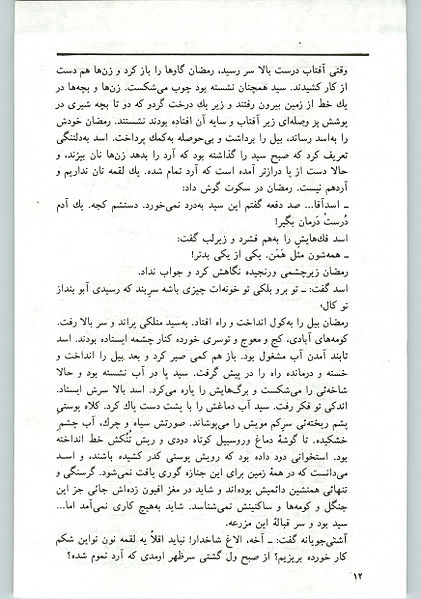 وقتی آفتاب درست بالا سر رسید، رمضان گاوها را باز کرد و زن‌ها هم دست
از کار کشیدند. سید همچنان نشسته بود چوب می‌شکست. زن‌ها و بچه‌ها در
یك خط از زمین بیرون رفتند و زیر یك درخت گردو که دو تا بچه شیری در
پوشش پر وصله‌ای زیر آفتاب و سایه آن افتاده بودند نشستند. رمضان خودش
را به‌اسد رساند، بیل را برداشت و بی‌حوصله به‌کمك پرداخت. اسد به‌دلتنگی
تعریف کرد که صبح سید را گذاشته بود که آرد را بدهد زن‌ها نان بپزند، و
حالا دست از پا درازتر آمده است که آرد تمام شده. یك لقمه نان نداریم و
آردهم نیست. رمضان در سکوت گوش داد:
ــ اسدآقا... صد دفعه گفتم این سید به‌درد نمی‌خورد. دستشم کجه. یك آدم
دُرست دَرمان بگیر!
اسد فك‌هایش را به‌هم فشرد و زیرلب گفت:
ــ همه‌شون مثل هَمَن. یکی از یکی بدتر!
رمضان زیرچشمی ورنجیده نگاهش کرد و جواب نداد.
اسد گفت: ــ تو برو بلکی تو خونه‌ات چیزی باشه سرِبند که رسیدی آبو بنداز
تو کال؛
رمضان بیل را به‌کول انداخت و راه افتاد. به‌سید متلکی پراند و سر بالا رفت.
کومه‌های آبادی، کج و معوج و توسری خورده کنار چشمه ایستاده بودند. اسد
تابند آمدن آب مشغول بود. باز هم کمی صبر کرد و بعد بیل را انداخت و
خسته و درمانده راه را در پیش گرفت. سید پا در آب نشسته بود و حالا
شاخه‌ئی را می‌شکست و برگ‌هایش را پاره می‌کرد. اسد بالا سرش ایستاد.
اندکی تو فکر رفت. سید آب دماغش را با پشت دست پاك کرد. کلاه پوستی
پشم ریخته‌ئی سرِکم مویش را می‌پوشاند. صورتش سیاه و چرك، آب چشمِ
خشکیده. تا گوشهٔ دماغ وروسبیل کوتاه دودی و ریش تُنُکش خط انداخته
بود. استخوانی دود داده بود که رویش پوستی کدر کشیده باشند، و اسد
می‌دانست که در همهٔ زمین برای این جنازه گوری یافت نمی‌شود. گرسنگی و
تنهائی همنشین دائمیش بوده‌اند و شاید در مغز افیون زده‌اش جائی جز این
جنگل و کومه‌ها و ساکنینش نمی‌شناسد. شاید به‌هیچ کاری نمی‌آمد اما...
سید بود و سر قبالهٔ این مزرعه.
آشتی‌جویانه گفت: ــ آخه، الاغ شاخدار! نباید اقلاً یه لقمه نون تواین شکم
کار خورده بریزیم؟ از صبح ول گشتی سرظهر اومدی که آرد نموم شده؟
۱۲